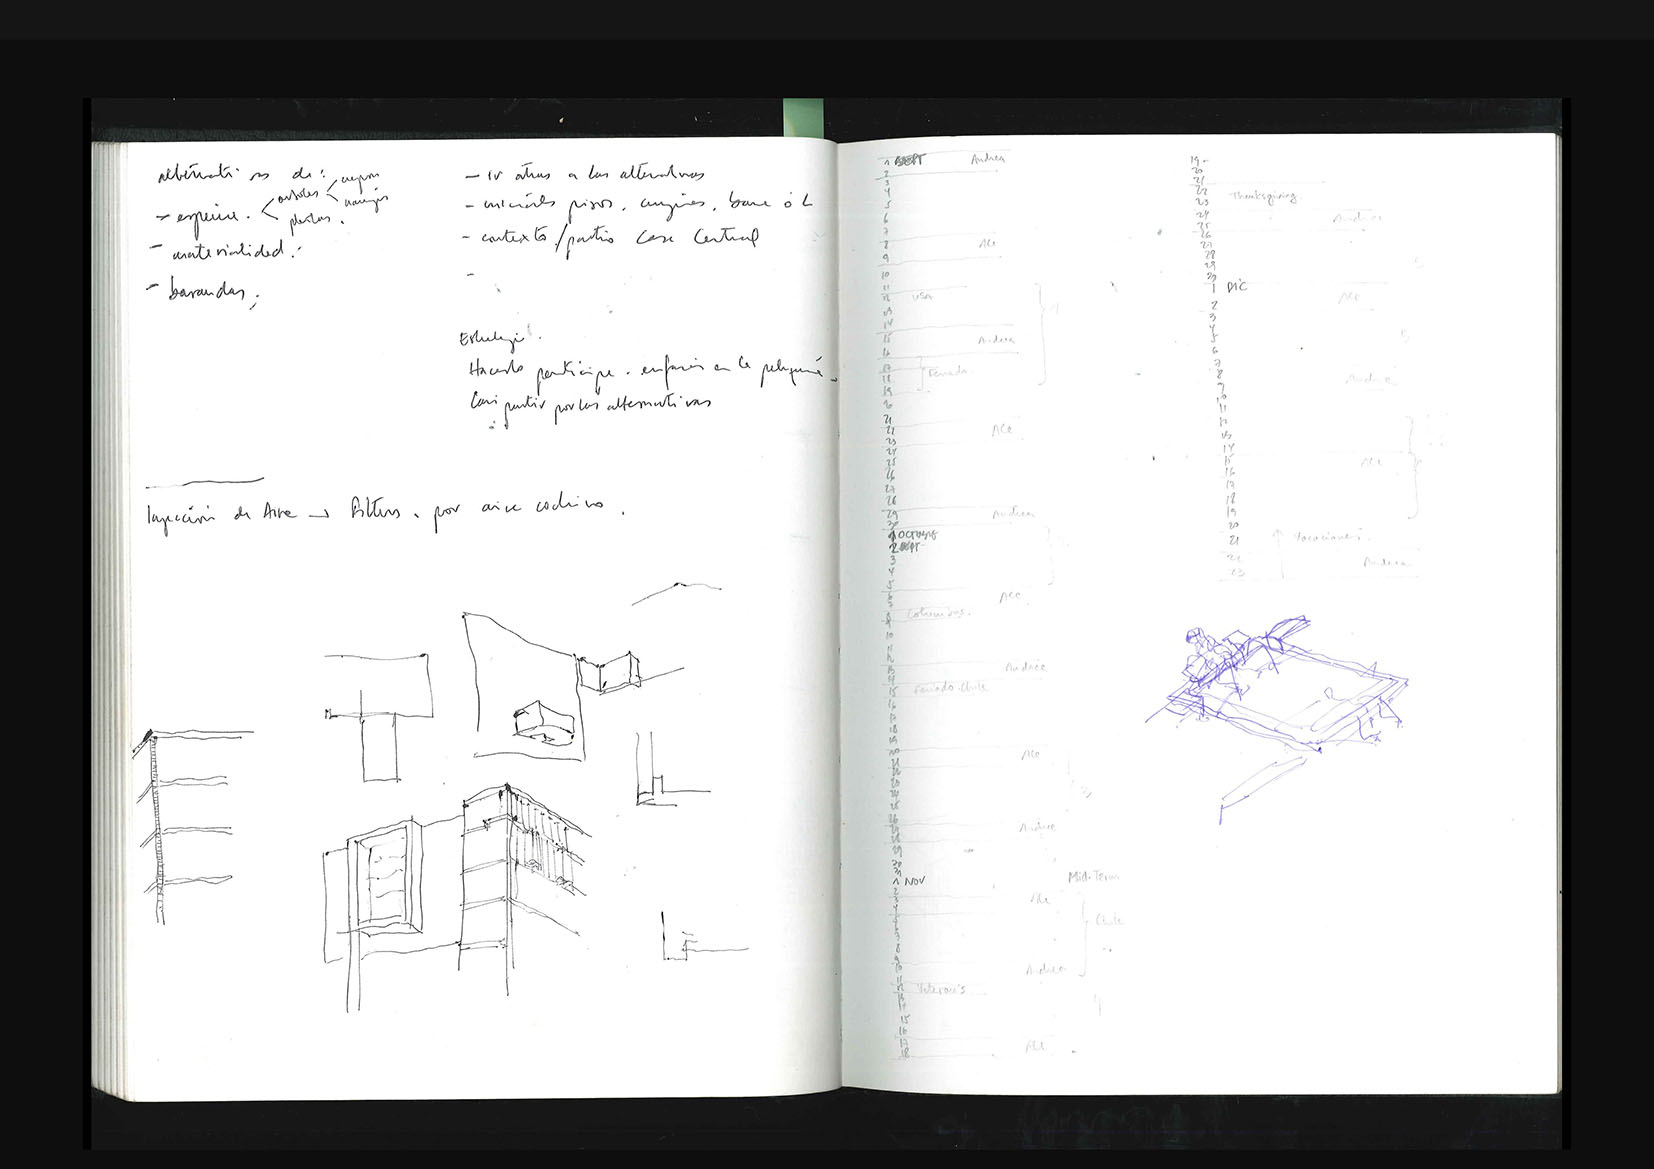 alternativas de:
- especies. árboles
plantas.
naranjos
- materialidad.
- barandas.
- ir atras a las alternativas
- pisos,
- contexto / patio Casa Central
-
Estrategi
Hacerlo participe. enfasis en la
Compartir por las alternativas
Inyección de Aire → Filtros, por aire
1 SEPT Andrea
2
3
4
5
6
7
8 Ale
9
10
11
12 USA
13
14
15 Andrea
16
17
18 Feriado
19
20
21
22 Ale
23
24
25
26
27
28
29 Andrea
30
1 OCTUBRE
2 SEPT
3
4
5
6 Ale
7
8 Columbus.
9
10
11
12
13 Andrea
14
15 Feriado Chile
16
17
18
19
20 Ale
21
22
23
24
25
26
27 Andrea
28
29
30
31
1 NOV Mid-Term
2
3 Ale
4 Chile
5
6
7
8
9
10 Andrea
11
12 Veteran's
13
14
15
16
17 Ale
18
19
20
21
22 Thanksgiving
23
24 Andrea
25
26
27
28
29
30
1 DIC
Ale
2
3
4
5
6
7
8 Andrea
9
10
11
12
13
14
15 Ale
16
17
18
19
20
21 Vacaciones.
22 Andrea
23